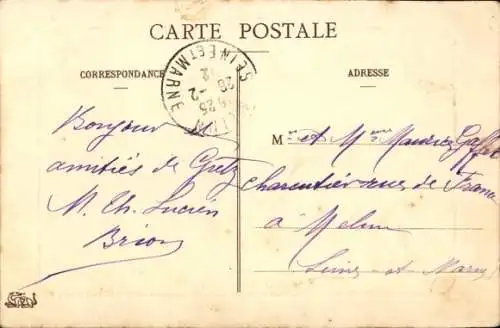 CARTE POSTALE
CORRESPONDANCE
ADRESSE
SEINE ET MARNE
Bonjour et
amitiés de Gretz
M. Ch. Lucien
Brion
M et Mme Maurice
charcutier rue de France
à Melun
Seine et Marne